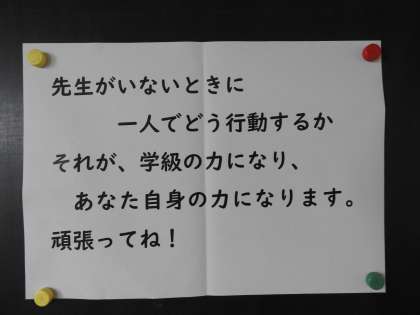 先生がいないときに
一人でどう行動するか
それが、学級の力になり、
あなた自身の力になります。
頑張ってね！